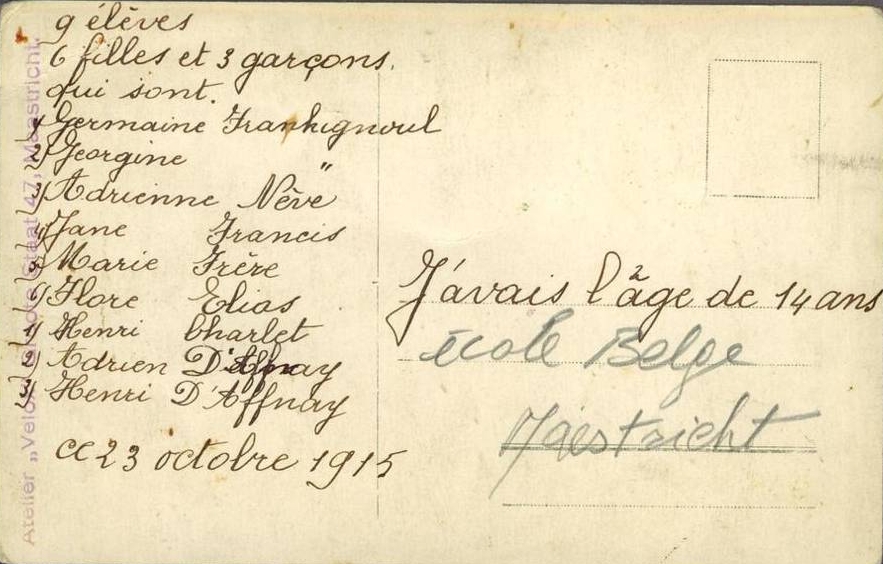 9 élèves
6 filles et 3 garçons.
qui sont.
1) Germaine Frankignoul
2) Georgine "
3) Adrienne Nêve
4) Jane Francis
5) Marie Frère
6) Flore Elias
1) Henri Charlet
2) Adrien D'Affnay
3) Henri D'Affnay
ce 23 octobre 1915
J'avais l'âge de 14 ans
école Belge
Maestricht
Atelier „Velox" Staat 47, Maastricht.